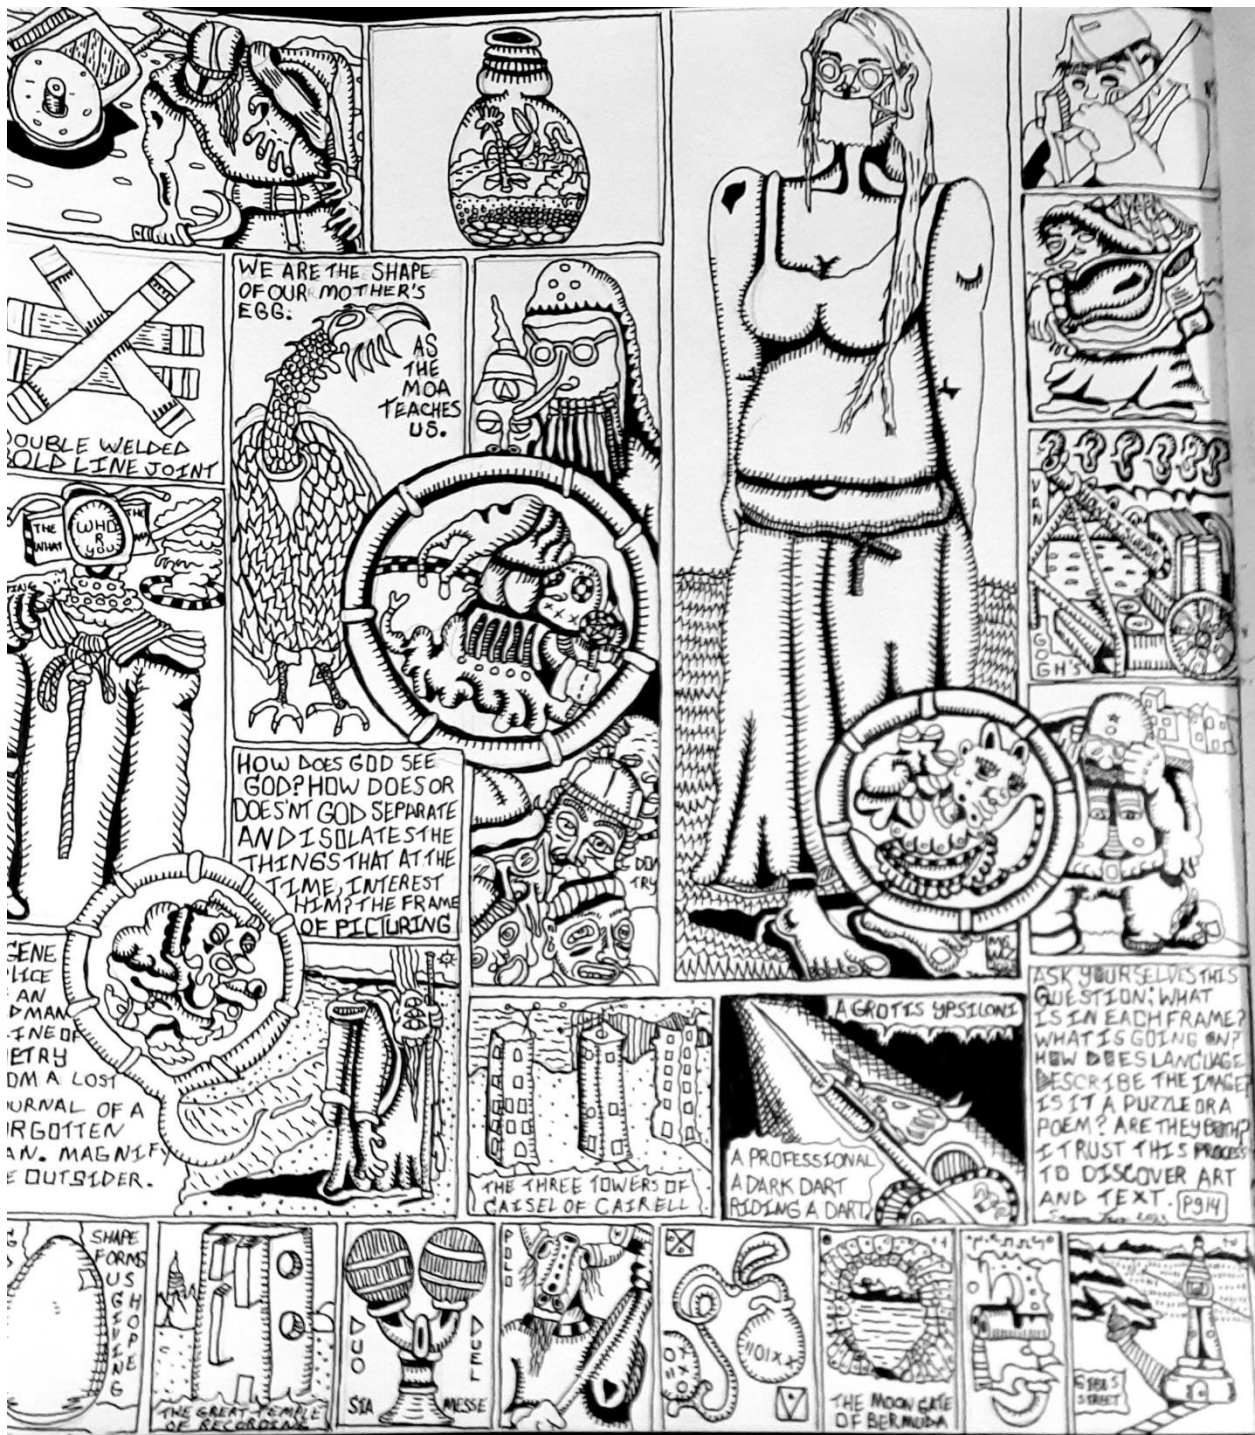 WE ARE THE SHAPE
OF OUR MOTHER'S
EGG.
AS
THE
MOA
TEACHES
US.
OUBLE WELDED
OLD LINE JOINT
THE
WHAT
WHO
R
YOU
VAN
GOGH'S
HOW DOES GOD SEE
GOD? HOW DOES OR
DOES'NT GOD SEPARATE
AND ISOLATES THE
THINGS THAT AT THE
TIME, INTEREST
HIM? THE FRAME
OF PICTURING
GENE
LICE
AN
DMAN
INE OF
ETRY
OM A LOST
OURNAL OF A
RGOTTEN
AN. MAGNIFY
E OUTSIDER.
THE THREE TOWERS OF
CAISEL OF CAIRELL
AGROTIS YPSILONI
A PROFESSIONAL
A DARK DART
RIDING A DART
ASK YOURSELVES THIS
QUESTION: WHAT
IS IN EACH FRAME?
WHAT IS GOING ON?
HOW DOES LANGUAGE
DESCRIBE THE IMAGE
IS IT A PUZZLE OR A
POEM? ARE THEY BOTH?
I TRUST THIS PROCESS
TO DISCOVER ART
AND TEXT. P914
SHAPE
FORMS
US
GIVING
HOPE
THE GREAT TEMPLE
OF RECORDING
DUO
DUEL
SIA
MESSE
POLO
THE MOON GATE
OF BERMUDA
STREET